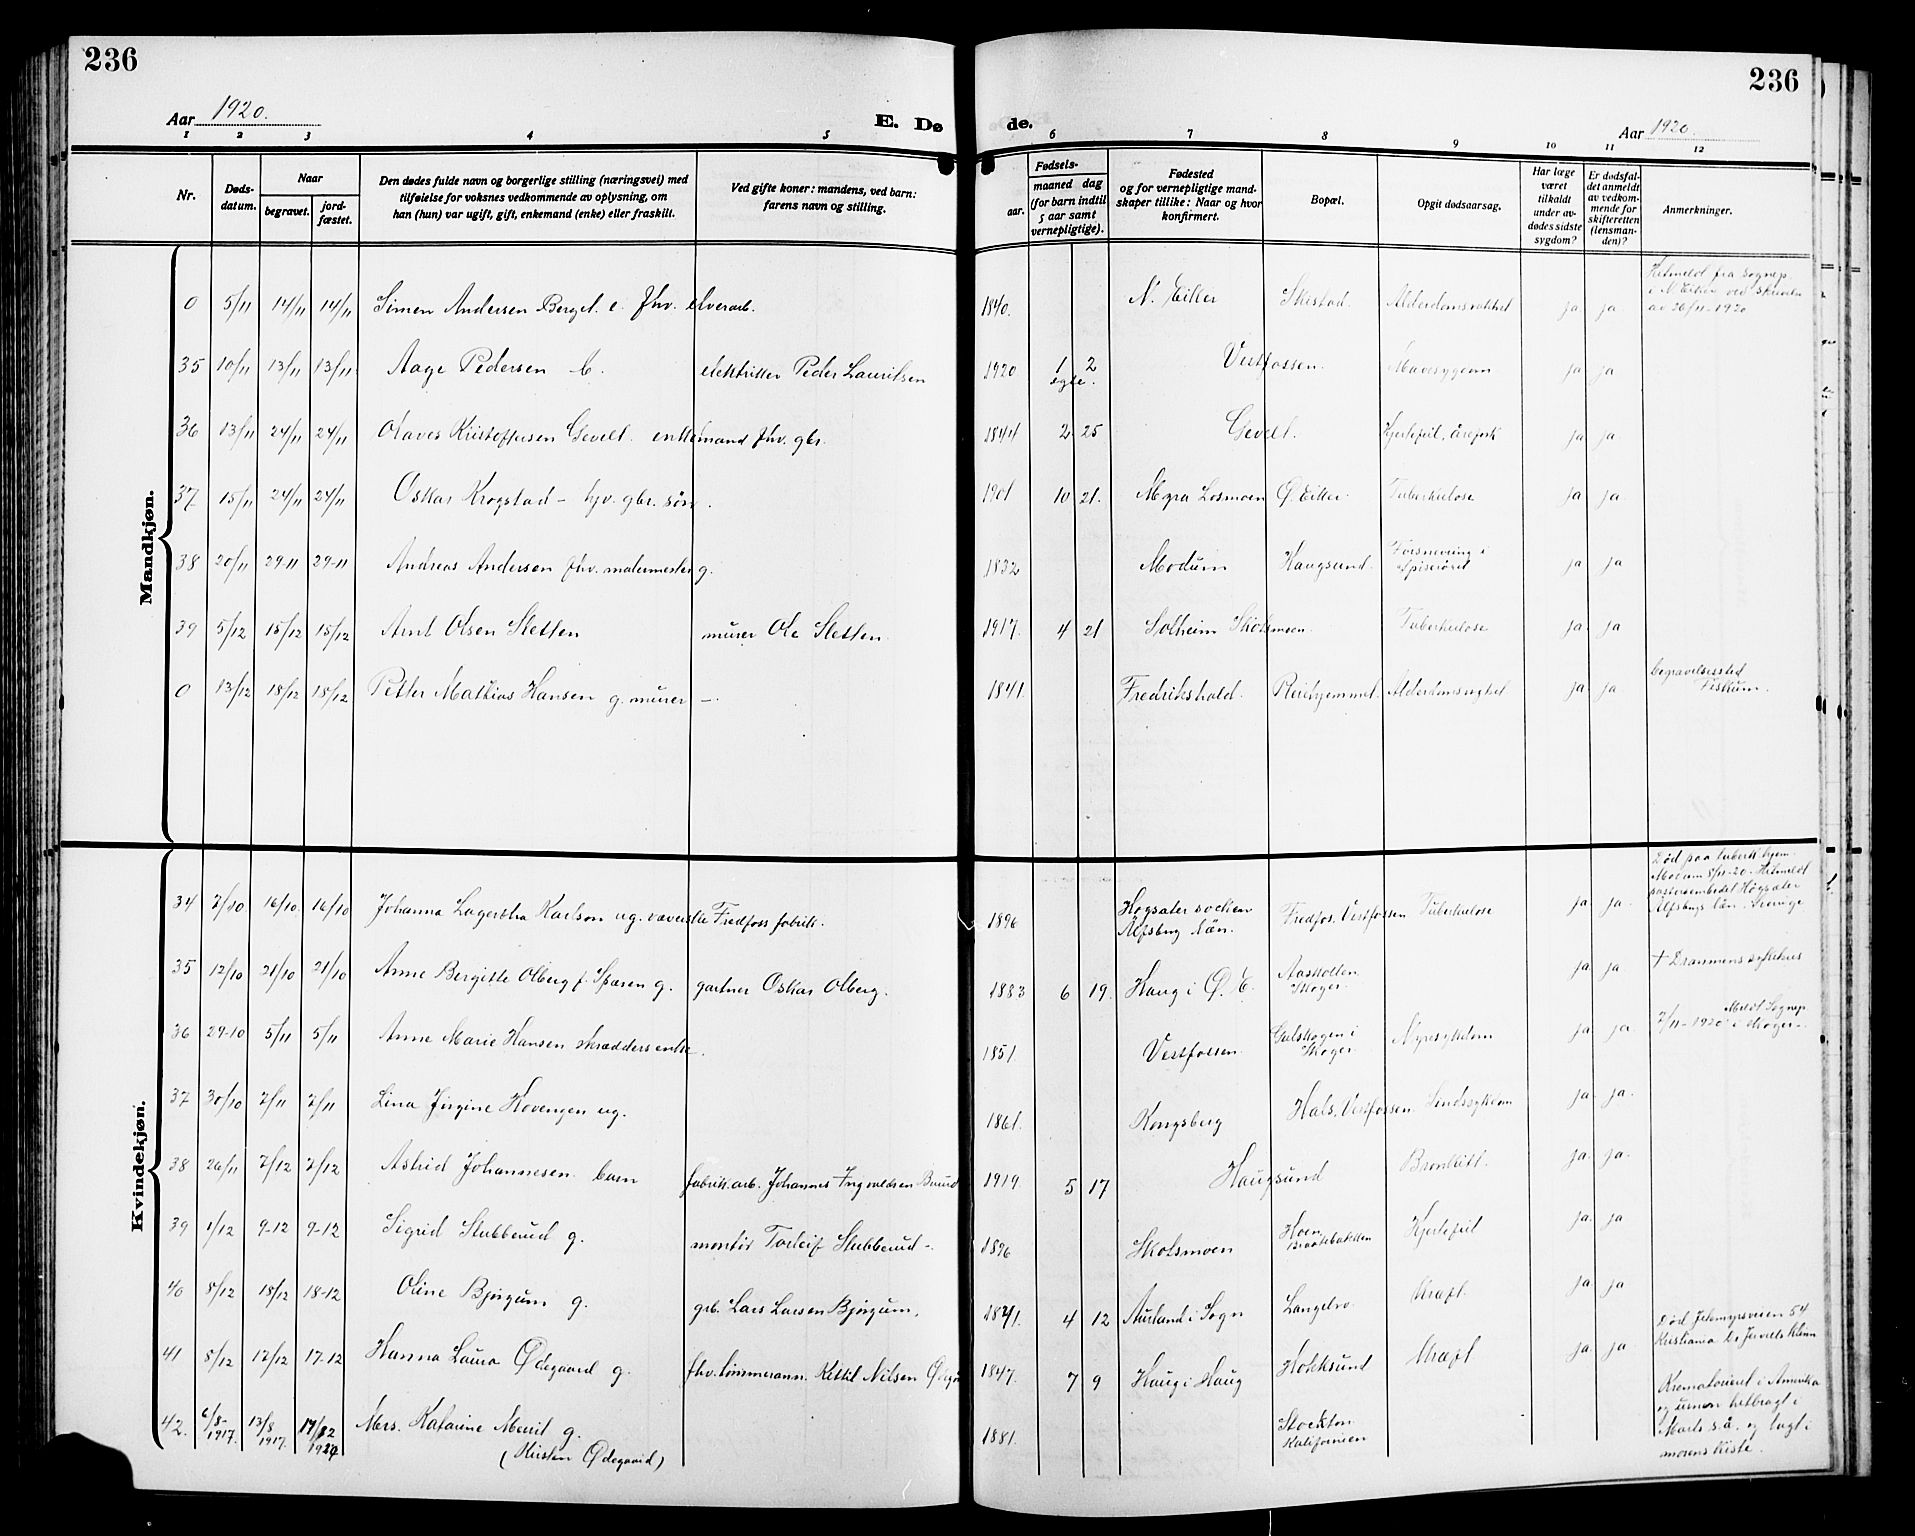 236
236
Aar 1920.
E. Dø
de.
Aar 1920.
1 2 3 4 5 6 7 8 9 10 11 12
Nr.
Døds-
datum.
Naar
begravet.
jord-
fæstet.
Den dødes fulde navn og borgerlige stilling (næringsvei) med
tilføielse for voksnes vedkommende av oplysning, om
han (hun) var ugift, gift, enkemand (enke) eller fraskilt.
Ved gifte koner: mandens, ved barn:
farens navn og stilling.
Fødsels-
aar.
maaned dag
(for barn indtil
5 aar samt
vernepligtige).
Fødested
og for vernepligtige mand-
skaper tillike: Naar og hvor
konfirmert.
Bopæl.
Opgit dødsaarsag.
Har læge
været
tilkaldt
under av-
dødes sidste
sygdom?
Er dødsfal-
det anmeldt
av vedkom-
mende for
skifteretten
(lensman-
den)?
Anmerkninger.
Mandkjøn.
0 5/11 14/11 14/11 Simen Andersen Berget. e. fhv. elverarb. 1840. N. Eiker Skistad. Alderdomsvakhet ja ja.
Hitmeldt fra Sognep.
i N. Eiker ved skrivelse
av 26/11-1920
35 10/11 13/11 13/11 Aage Pedersen b. elektriker Peder Lauritsen 1920 1 2 Vestfossen. Mavesygdom ja ja
egte.
36 13/11 24/11 24/11 Olaves Kristoffersen Gevelt. enkemand fhv. gbr. 1844 2 25 Gevelt. Hjertefeil, årefork ja ja.
37 15/11 24/11 24/11 Oskar Krogstad - hjv. gbr. søn. 1901 10 21. Myra Losmoen Ø. Eiker. Tuberkulose ja ja.
38 20/11 29-11 29-11 Andreas Andersen fhv. malermester g. 1832 Modum Haugsund. Forsnevring i
Spiserøret ja ja
39 5/12 15/12 15/12 Arnt Olsen Sletten murer Ole Sletten. 1917. 4 21 Solheim Skotsmoen. Tuberkulose ja. ja
0 13/12 18/12 18/12 Petter Mathias Hansen g. murer - 1841. Fredrikshald. Pleiehjemmet. Alderdomsvakhet ja ja.
begravelsessted
Fiskum.
Kvindekjøn.
34 7/10 16/10. 16/10 Johanna Lagertha Karlson ug. væverske Fredfoss fabrik. 1896 Høgsäter socken
Älfsborg Län. Fredfos, Vestfossen Tuberkulose ja. ja.
Død paa tuberk.hjem.
Modum 8/11-20. Hitmeldt
pastorsembedet Högsäter
Älfsborgs län. Sverige
35 12/10 21/10 21/10 Anne Bergitte Olberg f. Sparen g. gartner Oskar Olberg. 1883 6 19. Haug i Ø. E. Aaskollen
Skoger. ja ja
+ Drammens sykehus
36 29-10 5/11 5/11 Anne Marie Hansen skrædders enke. 1851 Vestfossen. Gulskogen i
Skoger. Nyresykdom ja ja.
Meldt Sognep.
7/11-1920 i Skoger.
37 30/10 7/11 7/11 Lina Jørgine Hovengen ug. 1861. Kongsberg Hals, Vestfossen. Sindssykdom ja. ja.
38 26/11 7/12 7/12 Astrid Johannesen. barn fabrik.arb. Johannes Ingvaldsen Buud 1919. 5 17 Haugsund Bronkitt. ja. ja.
39 1/12 9-12 9-12 Sigrid Stubberud g. montør Torleif Stubberud-. 1896 Skotsmoen Hoen,
Braatebakken Hjertefeil ja. ja
40 8/12 18/12 18-12 Oline Bjørgum g. grb. Lars Larsen Bjørgum. 1841. 4 12 Aurland i Sogn Langelo. Kræft. ja ja
41 8/12 17/12 17-12 Hanna Laura Ødegaard g. fhv. tømmerann. Kittil Nilsen Ødeg 1847. 7 9 Haug i Haug Hokksund Kræft. ja. ja
Død
Kristiania
42. 6/8-1917. 13/8 1917. 17/12 1920 Mrs. Katarine Merit g.
(Kirsten Ødegaard) 1881. Stockton
Kalifornien
Krematoriet i Amerika
og urnen hitbragt i
Marts s.å. og lagt i
morens kiste.